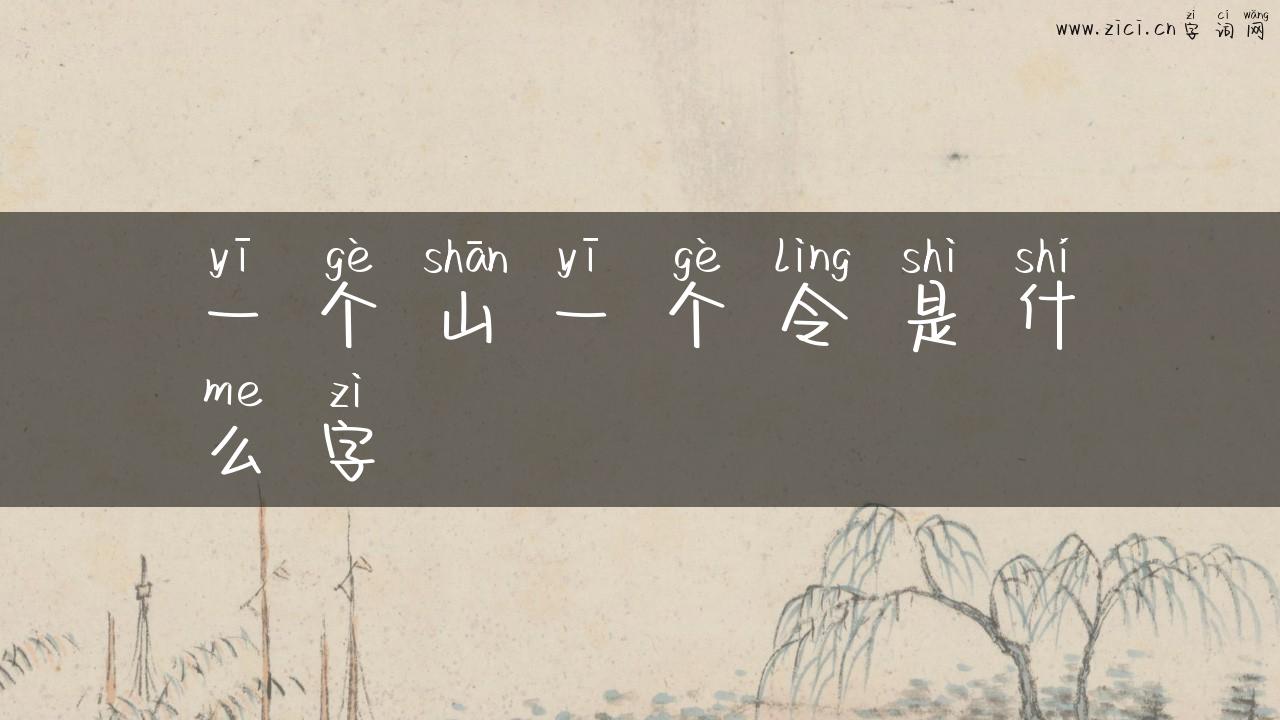 zì cí wǎng
www.zici.cn 字词网
yī gè shān yī gè lìng shì shí
一个山一个令是什
me zì
么字